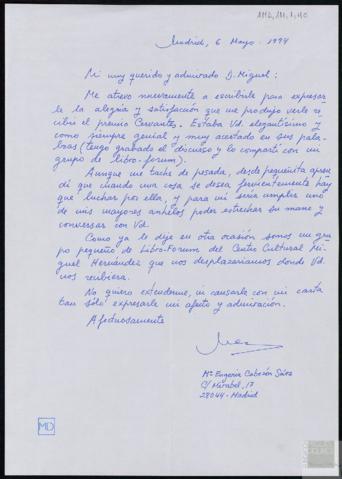 MD, 111, 1, 40
Madrid, 6 Mayo - 1994
Mi muy querido y admirado D. Miguel:
Me atrevo nuevamente a escribirle para expresar
le la alegría y satisfacción que me produjo verle re
cibir el premio Cervantes. Estaba Vd. elegantísimo y
como siempre genial y muy acertado en sus pala-
bras (tengo grabado el discurso y lo compartí con mi
grupo de libro-forum).
Aunque me tache de pesada, desde pequeñita apren
dí que cuando una cosa se desea fervientemente hay
que luchar por ella, y para mí sería cumplir uno
de mis mayores anhelos poder estrechar su mano y
conversar con Vd.
Como ya le dije en otra ocasión somos un gru
po pequeño de Libro-Forum del Centro Cultural Mi
guel Hernández que nos desplazaríamos donde Vd.
nos recibiera.
No quiero extenderme, ni cansarle con mi carta
tan sólo expresarle mi afecto y admiración.
Afectuosamente
Mª Eugenia Cabezón Sáez
C/ Mirabel, 17
28044 - Madrid
MD